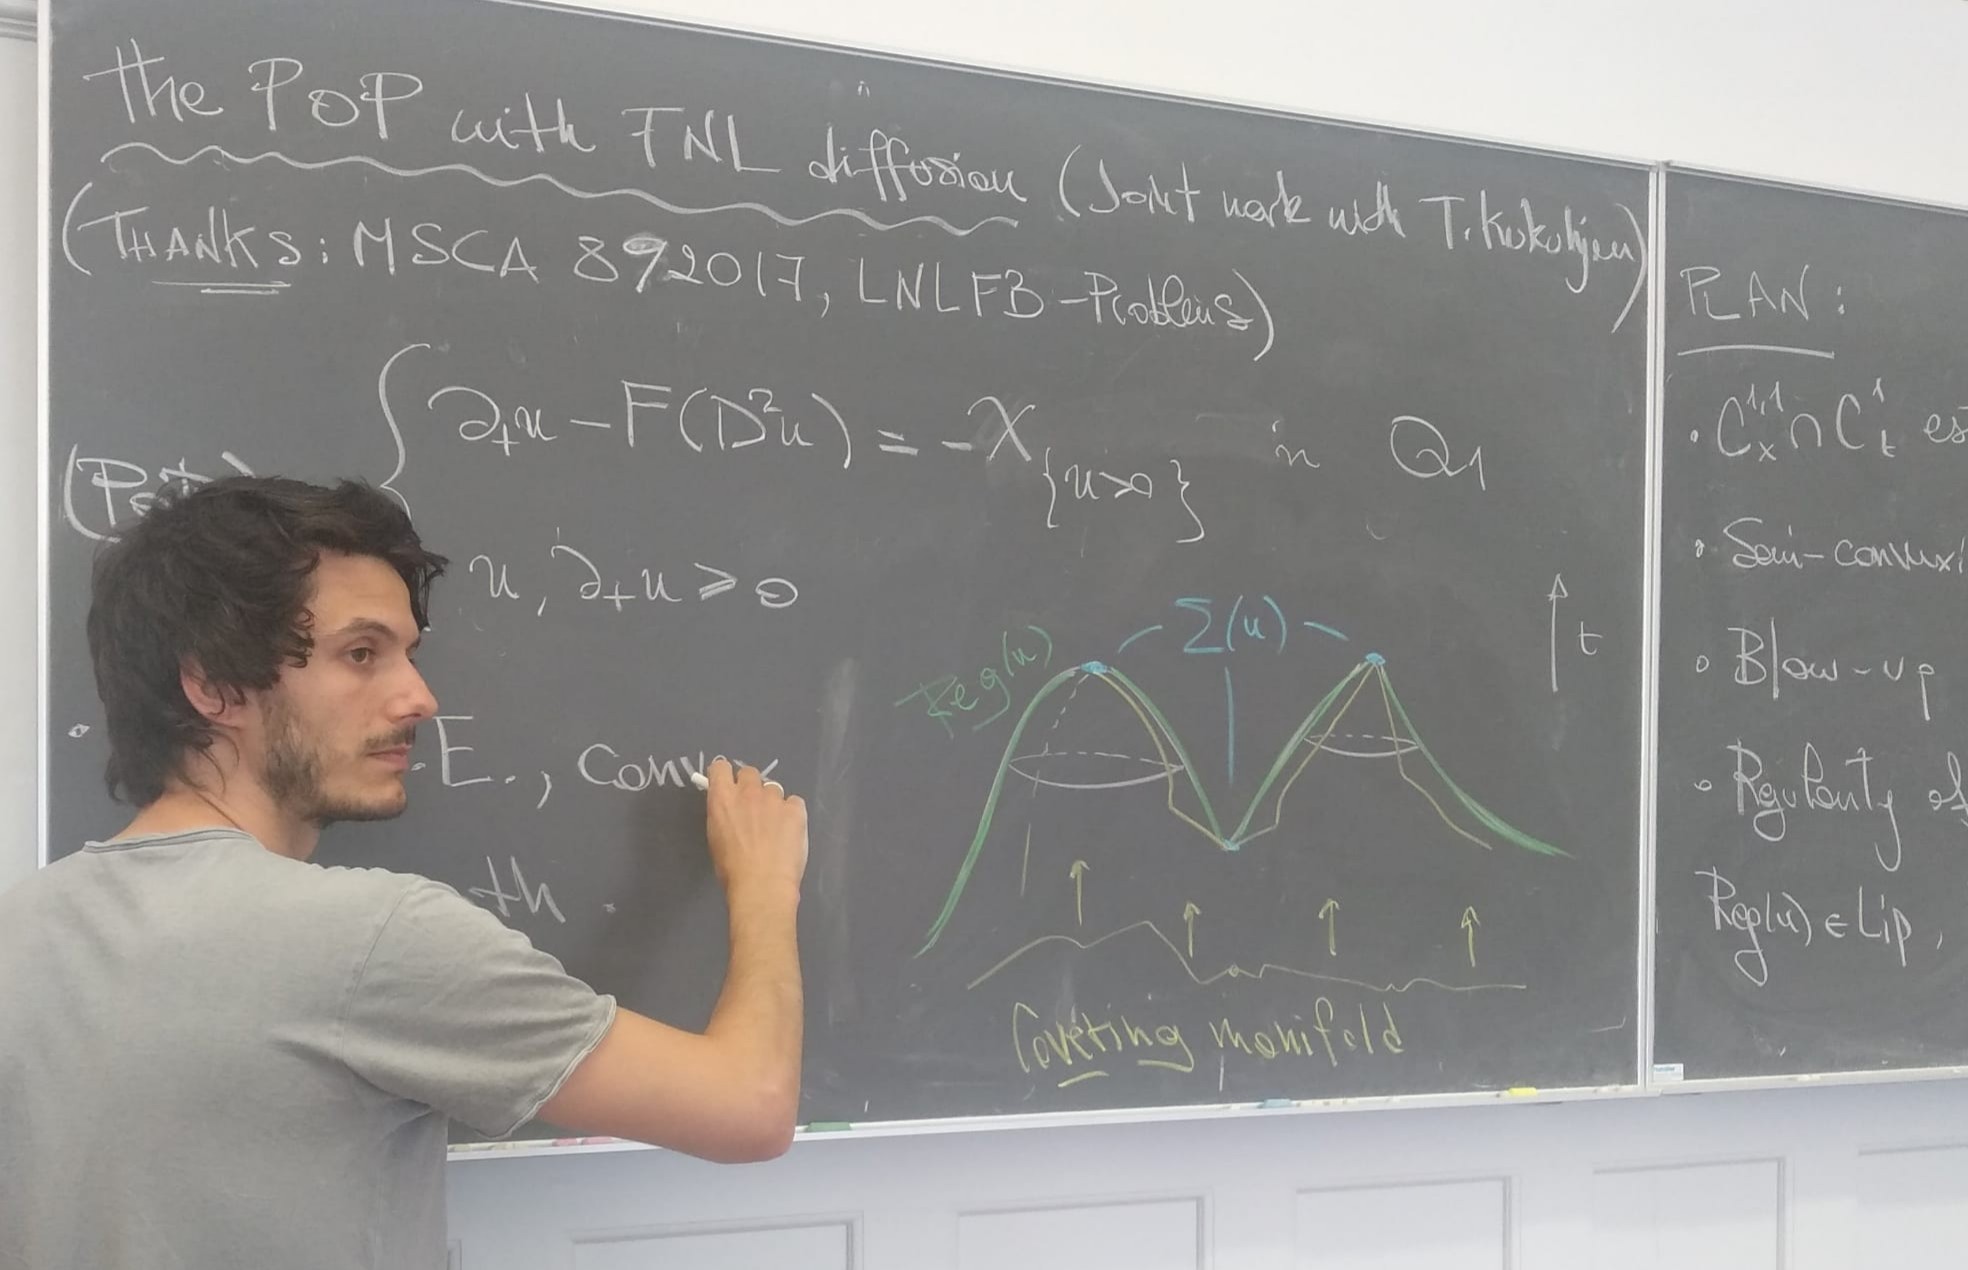 The POP with FNL diffusion (Joint work with T. Kukuljan)
(THANKS: MSCA 892017, LNLFB-Problems)
∂ₜu - F(D²u) = -χ_{u>0} in Q₁
u, ∂ₜu ≥ 0
E., Convex
th.
Reg(u)
Σ(u)
t
Covering manifold
PLAN:
• C_x^{1,1} ∩ C_t^1 es
• Semi-convexi
• Blow-up
• Regularity of
Reg(u) ∈ Lip,